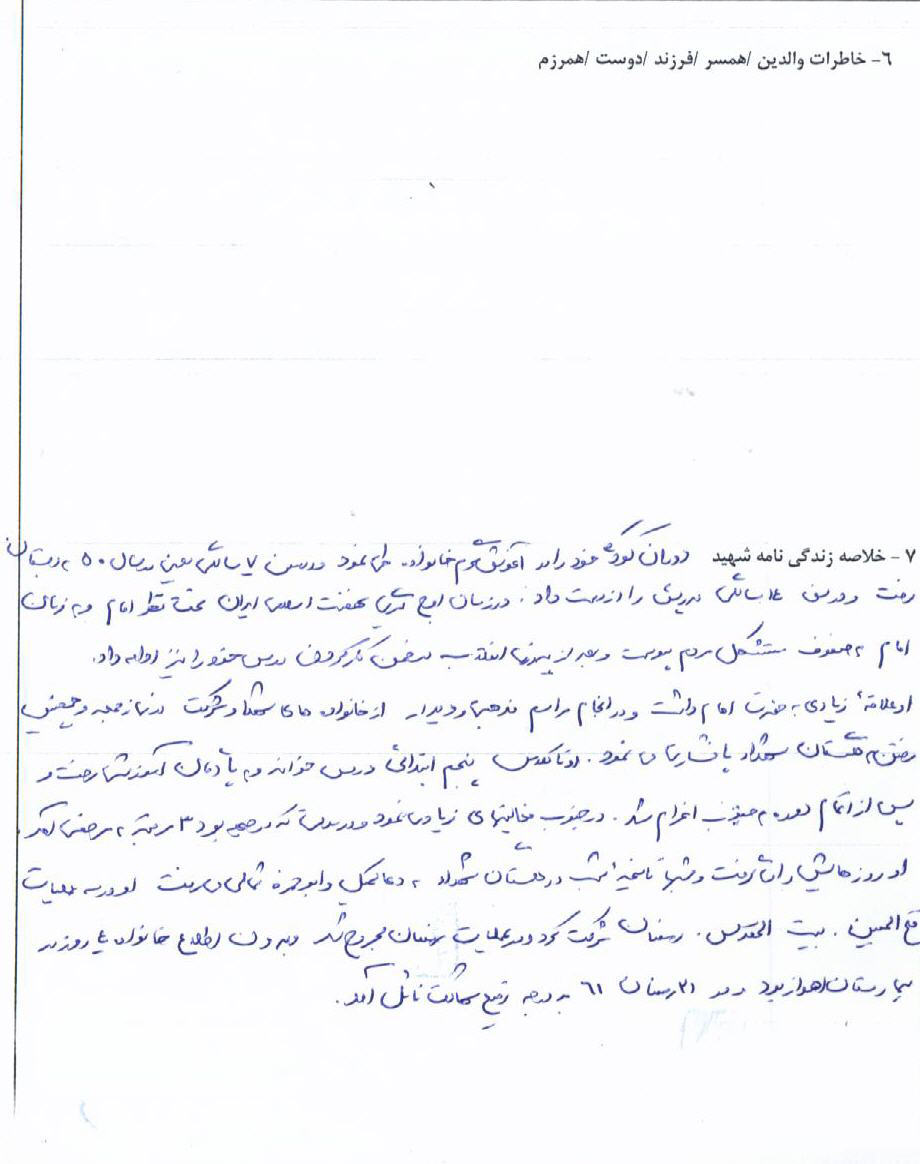 ۶- خاطرات والدین /همسر /فرزند /دوست /همرزم
۷- خلاصه زندگی نامه شهید دوران کودکی خود را در آغوش گرم خانواده طی نمود و در سن ۷ سالگی یعنی در سال ۵۰ به دبستان
رفت و در سن ۱۴ سالگی پدرش را از دست داد. در زمان اوج گیری نهضت اسلامی ایران تحت نظر امام و به فرمان
امام به صفوف متشکل مردم پیوست و بعد از پیروزی انقلاب در ضمن کار کردن درس خود را نیز ادامه داد.
او علاقه زیادی به حضرت امام داشت و در انجام مراسم مذهبی و دیدار از خانواده های شهدا و شرکت در نماز جمعه و همچنین
رفتن به گلستان شهدا پافشاری می نمود. او تا کلاس پنجم ابتدائی درس خواند و به پادگان آموزشی رفت و
پس از اتمام دوره به جنوب اعزام شد. در جنوب فعالیتهای زیادی نمود و در مدتی که در جبهه بود ۳ مرتبه به مرخصی آمد
او روزهایش را می گرفت و شبها تا نیمه شب در گلستان شهدا به دعا کمیل و ابوحمزه ثمالی می رفت او در سه عملیات
فتح المبین. بیت المقدس. رمضان شرکت کرد و در عملیات رمضان مجروح شد و بدون اطلاع خانواده روز در
بیمارستان اهواز بود و در ۲۱ رمضان ۶۱ به درجه رفیع شهادت نائل آمد.